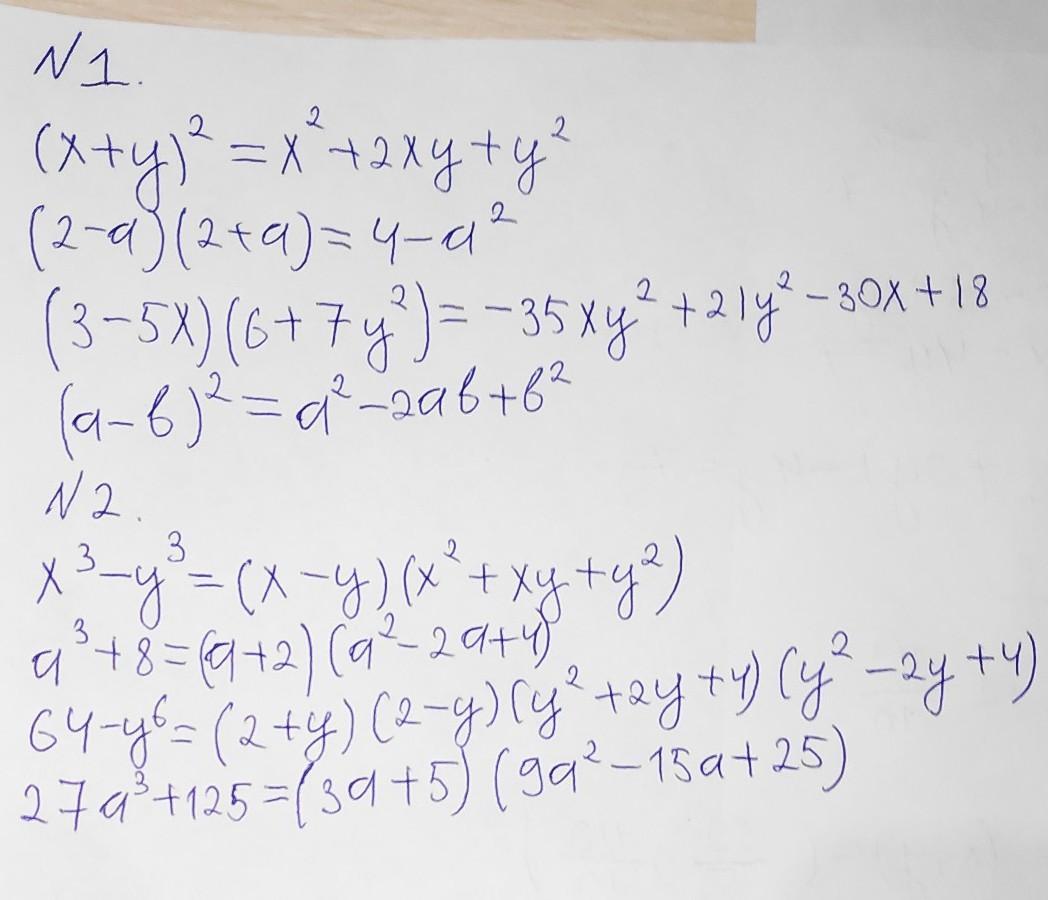 N1.
(x+y)² = x²+2xy+y²
(2-a)(2+a)=4-a²
(3-5x)(6+7y²)=-35xy²+21y²-30x+18
(a-b)²=a²-2ab+b²
N2.
x³-y³=(x-y)(x²+xy+y²)
a³+8=(a+2)(a²-2a+4)
64-y⁶=(2+y)(2-y)(y²+2y+4)(y²-2y+4)
27a³+125=(3a+5)(9a²-15a+25)